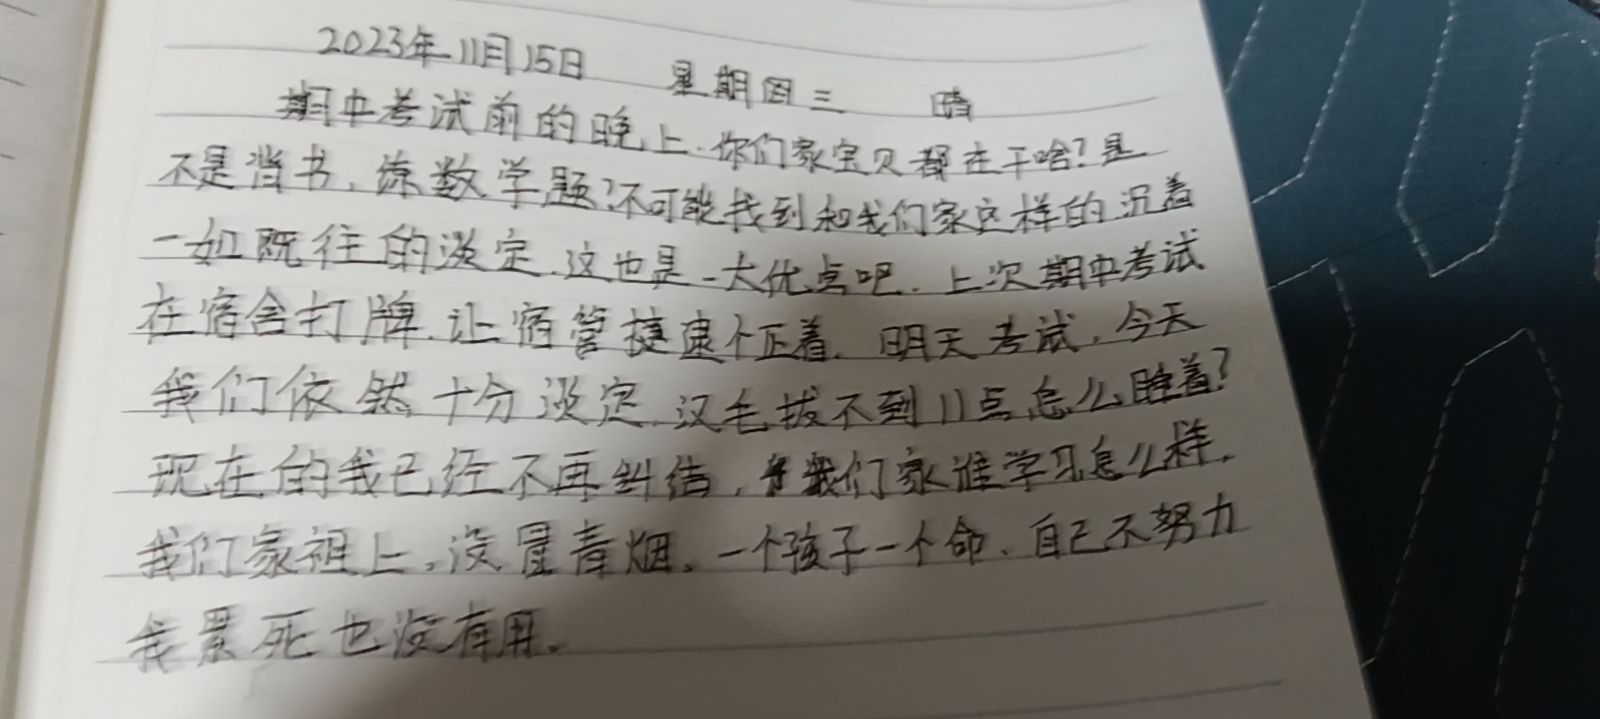 2023年11月15日 星期三 晴
期中考试前的晚上.你们家宝贝都在干啥?是
不是背书、练数学题?不可能找到和我们家这样的沉着
一如既往的淡定.这也是一大优点吧.上次期中考试
在宿舍打牌.让宿管捷逮个正着.明天考试.今天
我们依然十分淡定.汉毛拔不到11点怎么睡着?
现在的我已经不再纠结,我们家谁学习怎么样.
我们家祖上.没冒青烟.一个孩子一个命、自己不努力
我累死也没有用.